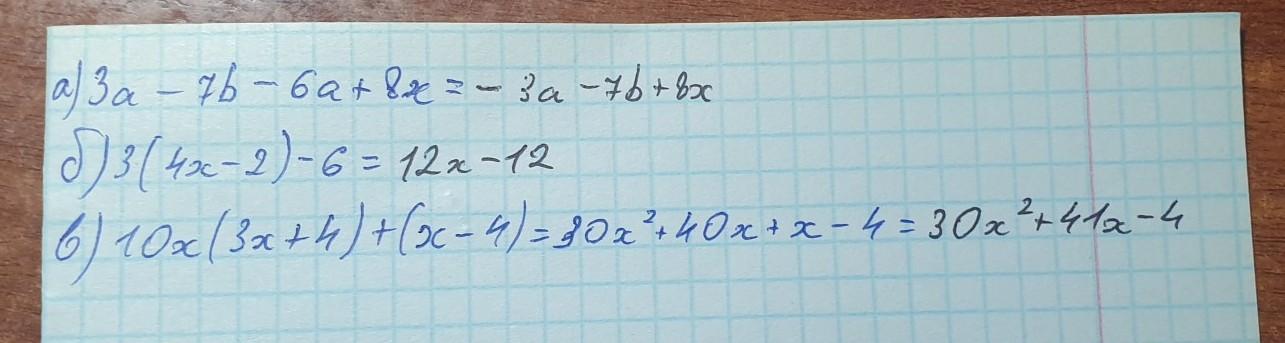 а) 3a - 7b - 6a + 8x = - 3a - 7b + 8x
б) 3(4x - 2) - 6 = 12x - 12
в) 10x(3x + 4) + (x - 4) = 30x² + 40x + x - 4 = 30x² + 41x - 4